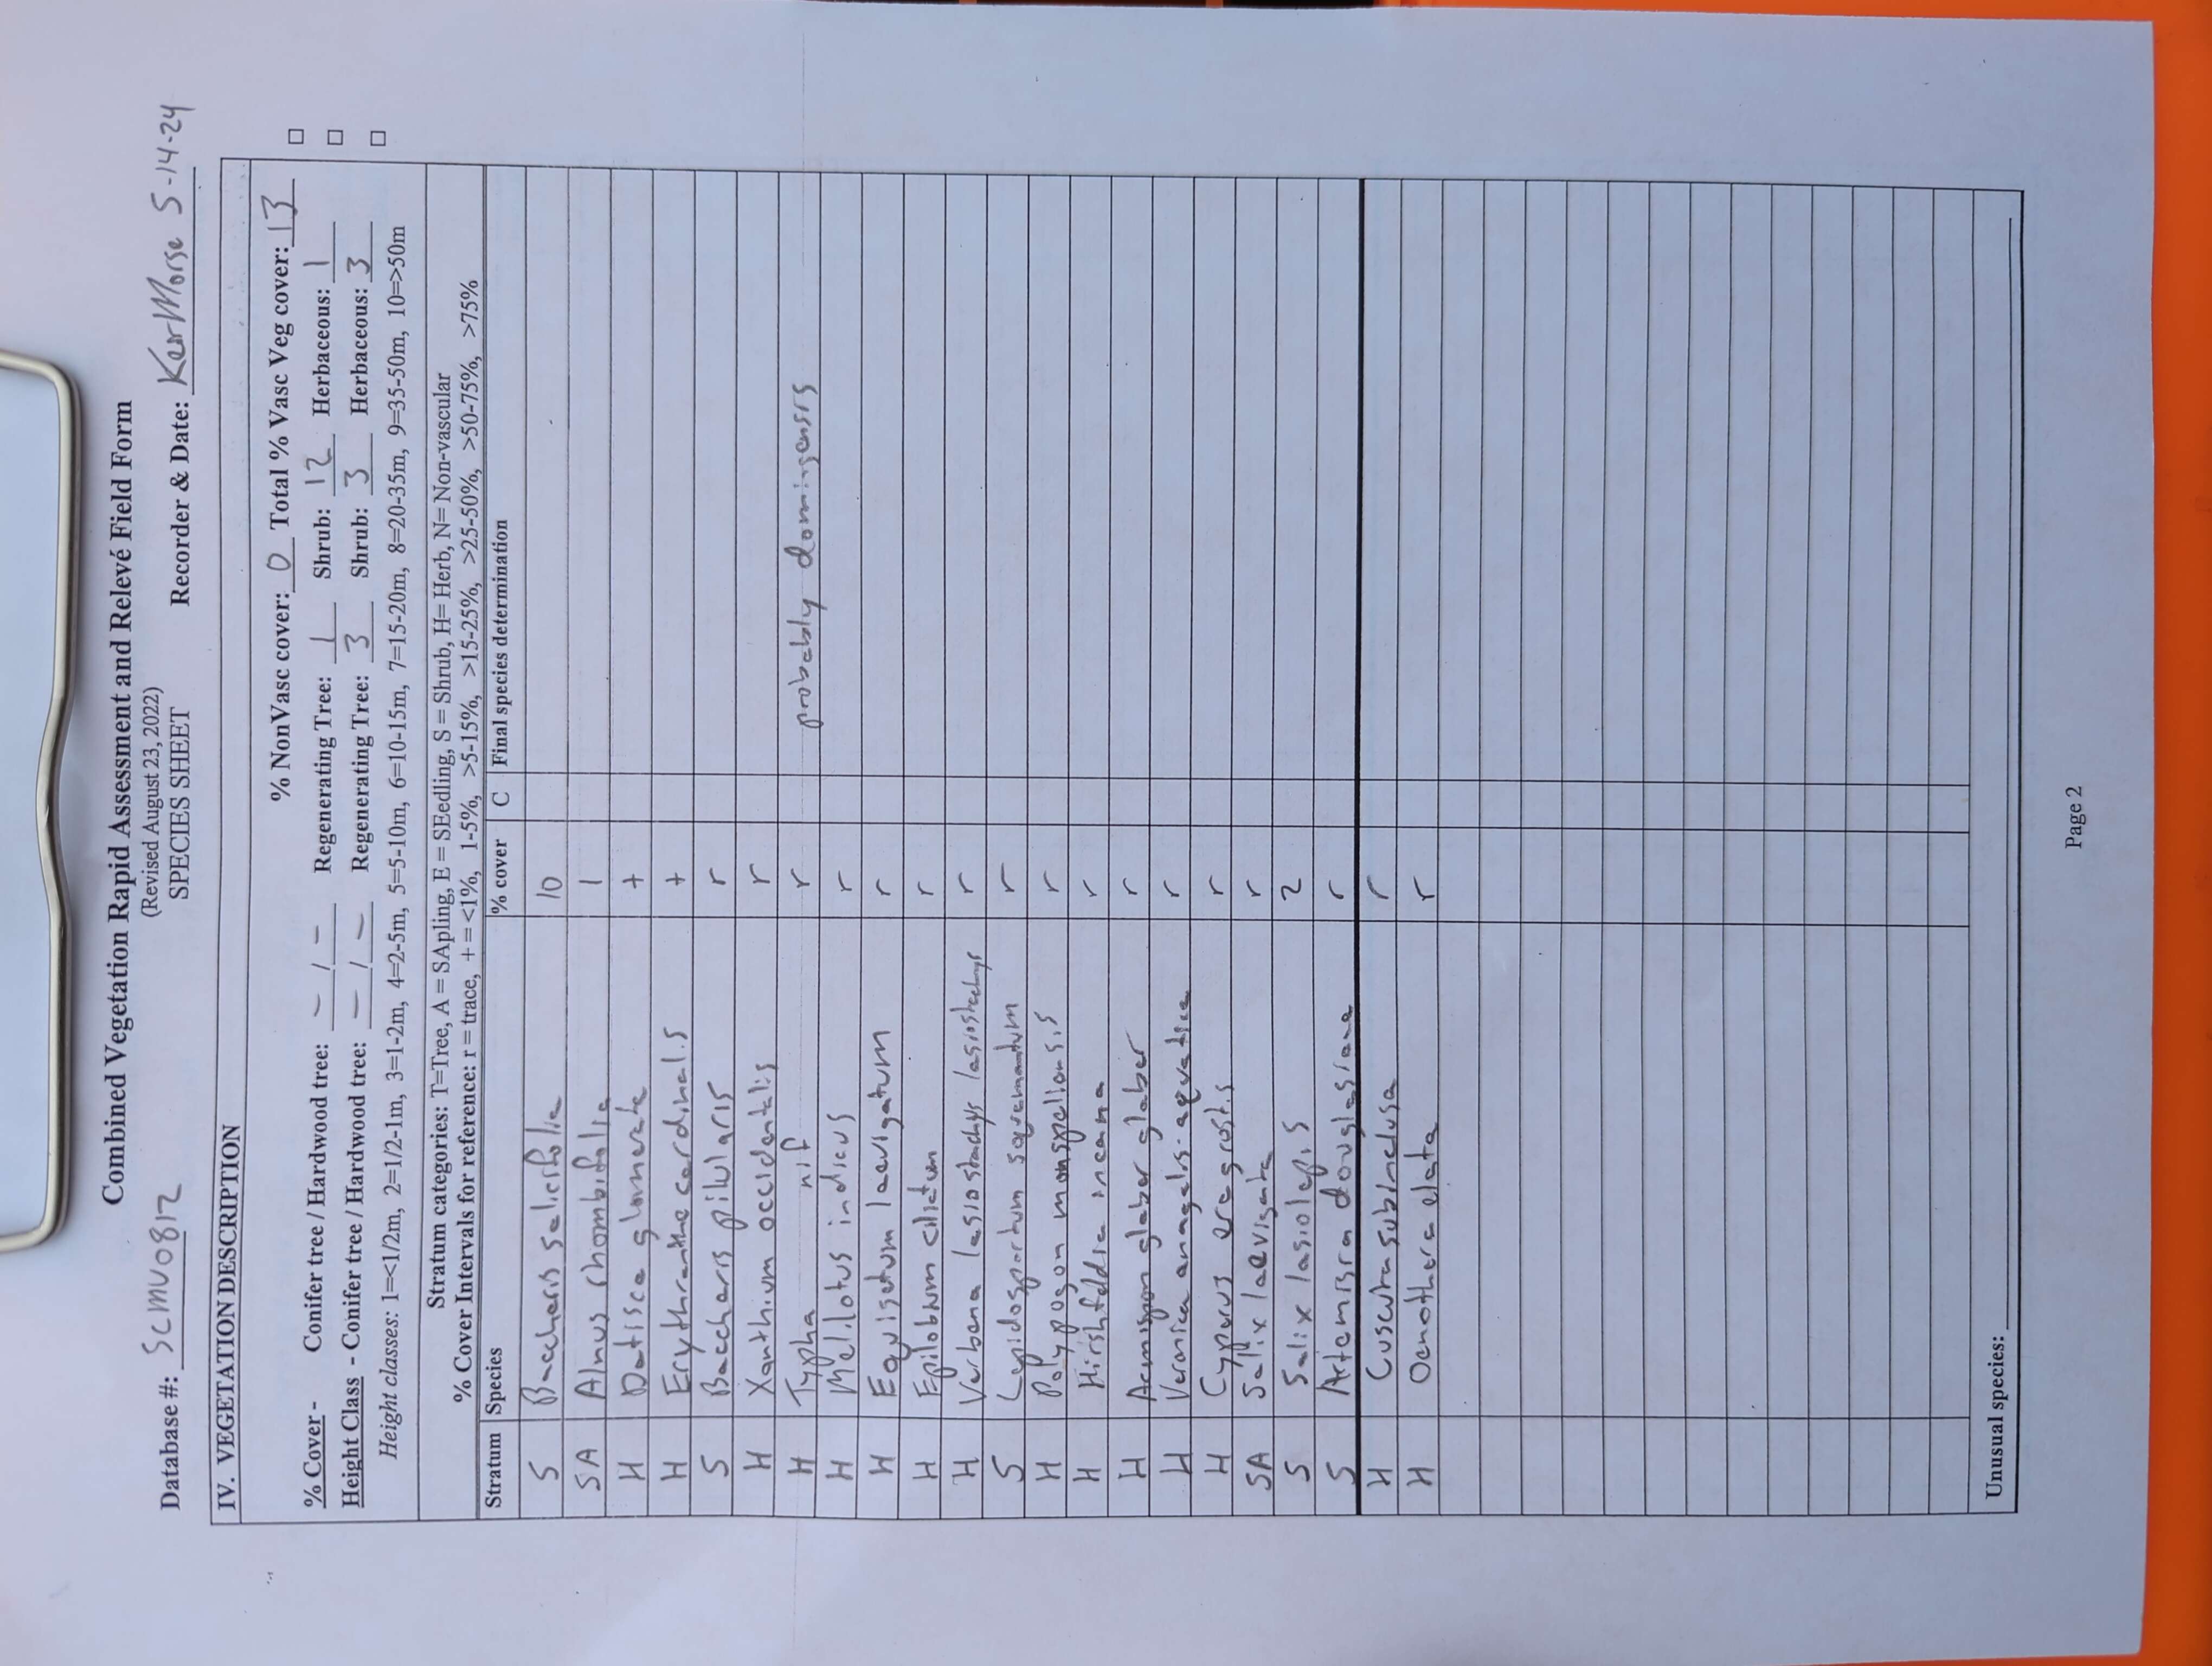 Combined Vegetation Rapid Assessment and Relevé Field Form
(Revised August 23, 2022)
Database #: SCMV0812 SPECIES SHEET Recorder & Date: Ken Morse 5-14-24
IV. VEGETATION DESCRIPTION
% NonVasc cover: 0 Total % Vasc Veg cover: 13
% Cover - Conifer tree / Hardwood tree: - / - Regenerating Tree: 1 Shrub: 12 Herbaceous: 1
Height Class - Conifer tree / Hardwood tree: - / - Regenerating Tree: 3 Shrub: 3 Herbaceous: 3
Height classes: 1=<1/2m, 2=1/2-1m, 3=1-2m, 4=2-5m, 5=5-10m, 6=10-15m, 7=15-20m, 8=20-35m, 9=35-50m, 10=>50m
Stratum categories: T=Tree, A = SApling, E = SEedling, S = Shrub, H= Herb, N= Non-vascular
% Cover Intervals for reference: r = trace, + = <1%, 1-5%, >5-15%, >15-25%, >25-50%, >50-75%, >75%
Stratum Species % cover C Final species determination
S Baccharis salicifolia 10
SA Alnus rhombifolia 1
H Datisca glomerata +
H Erythranthe cardinalis +
S Baccharis pilularis r
H Xanthium occidentalis r
H Typha nif r probably domingensis
H Melilotus indicus r
H Equisetum laevigatum r
H Epilobium ciliatum r
H Verbena lasiostachys lasiostachys r
S Lepidospartum squamatum r
H Polypogon monspeliensis r
H Hirshfeldia incana r
H Acmispon glaber glaber r
H Veronica anagalis-aquatica r
H Cyperus eragrostis r
SA Salix laevigata r
S Salix lasiolepis 2
S Artemisia douglasiana r
H Cuscuta subinclusa r
H Oenothera elata r
Unusual species:
Page 2